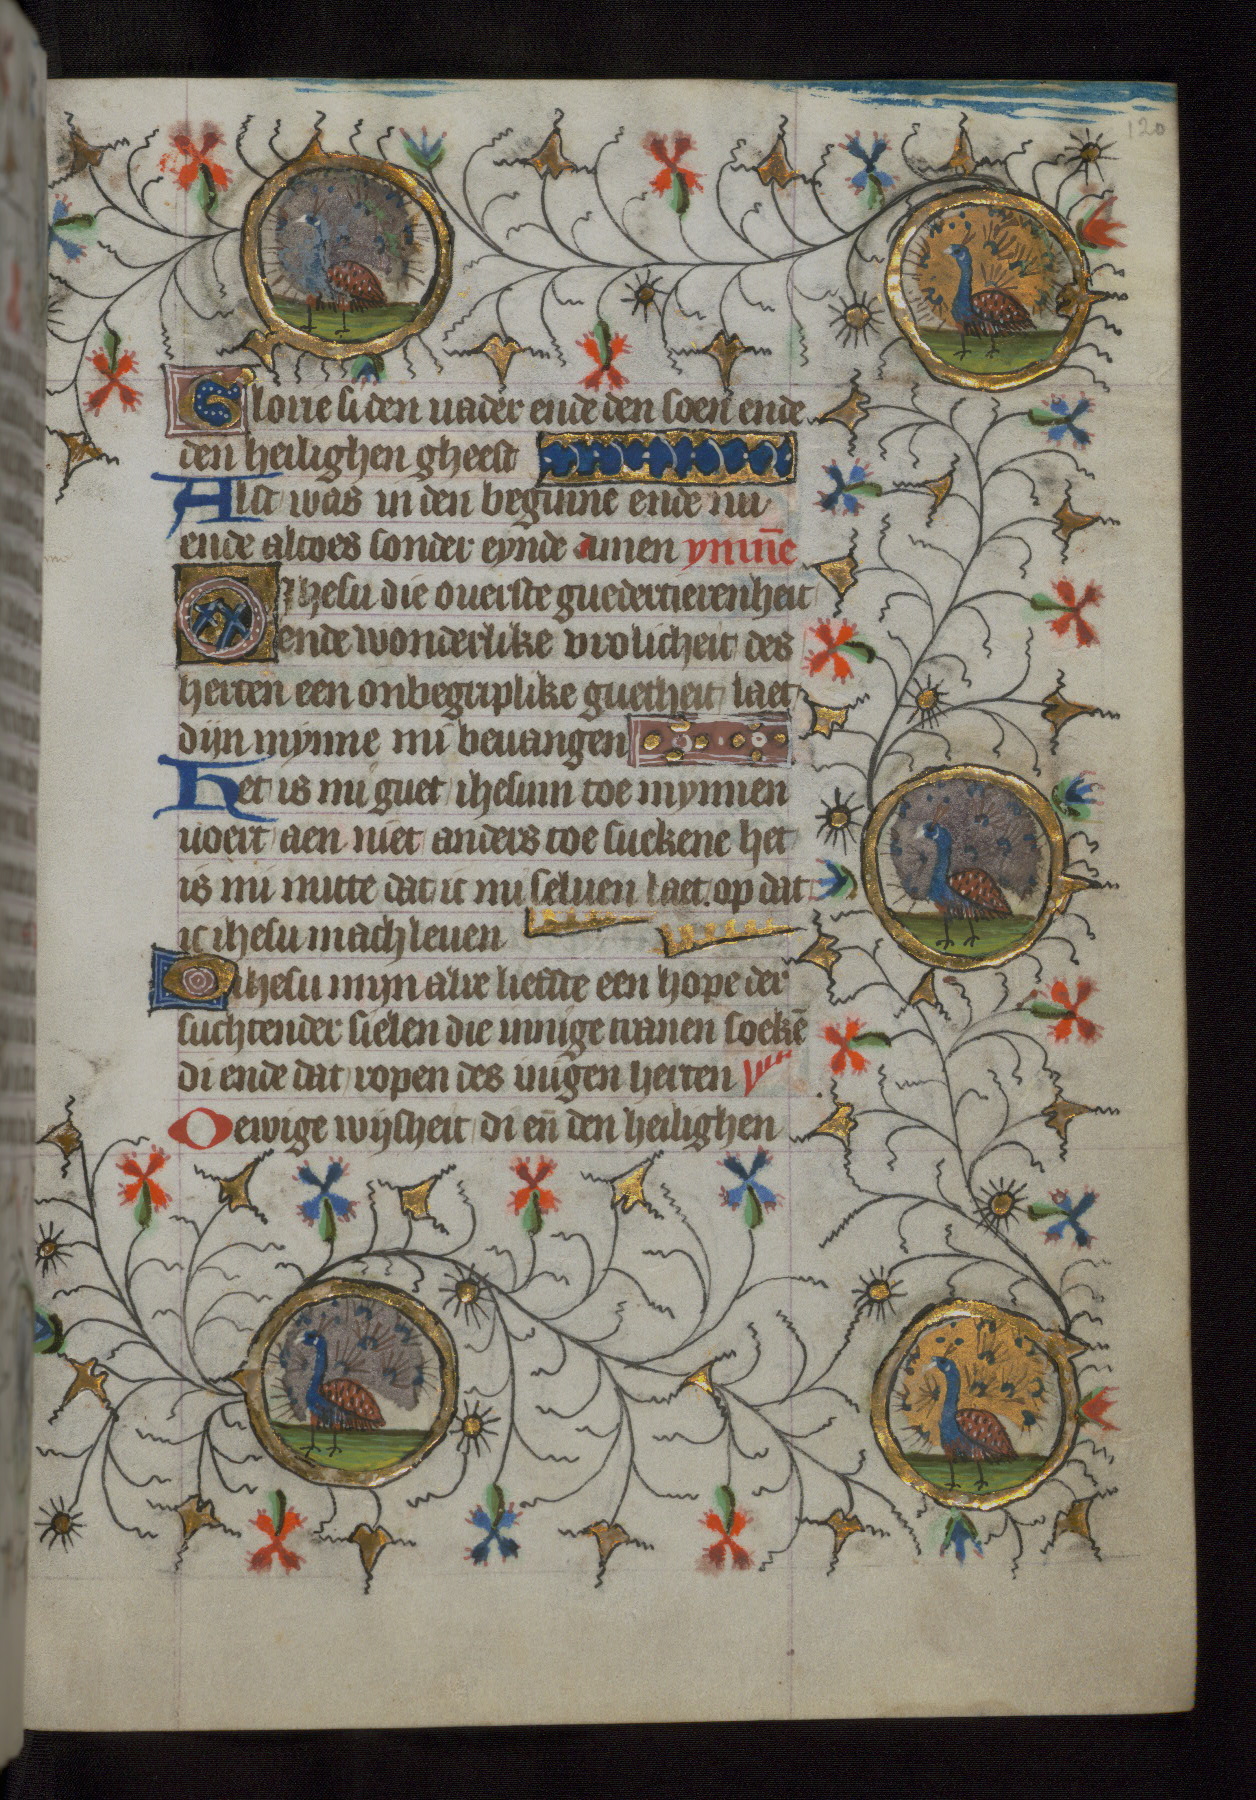 120
Glorie si den uader ende den soen ende
den heilighen gheest
Alst was in den beginne ende nu
ende altoes sonder eynde amen ymn̄e
O ihesu die ouerste guedertierenheit
ende wonderlike vrolicheit des
herten een onbegriplike guetheit laet
dijn mynne mi beuangen
Het is mi guet ihesum toe mynnen
uoert aen niet anders toe suekene het
is mi nutte dat ic mi seluen laet op dat
ic ihesu mach leuen
O ihesu mijn alre liefste een hope der
suchtender sielen die innige tranen soekē
di ende dat ropen des innigen herten
O ewige wijsheit di en̄ den heilighen